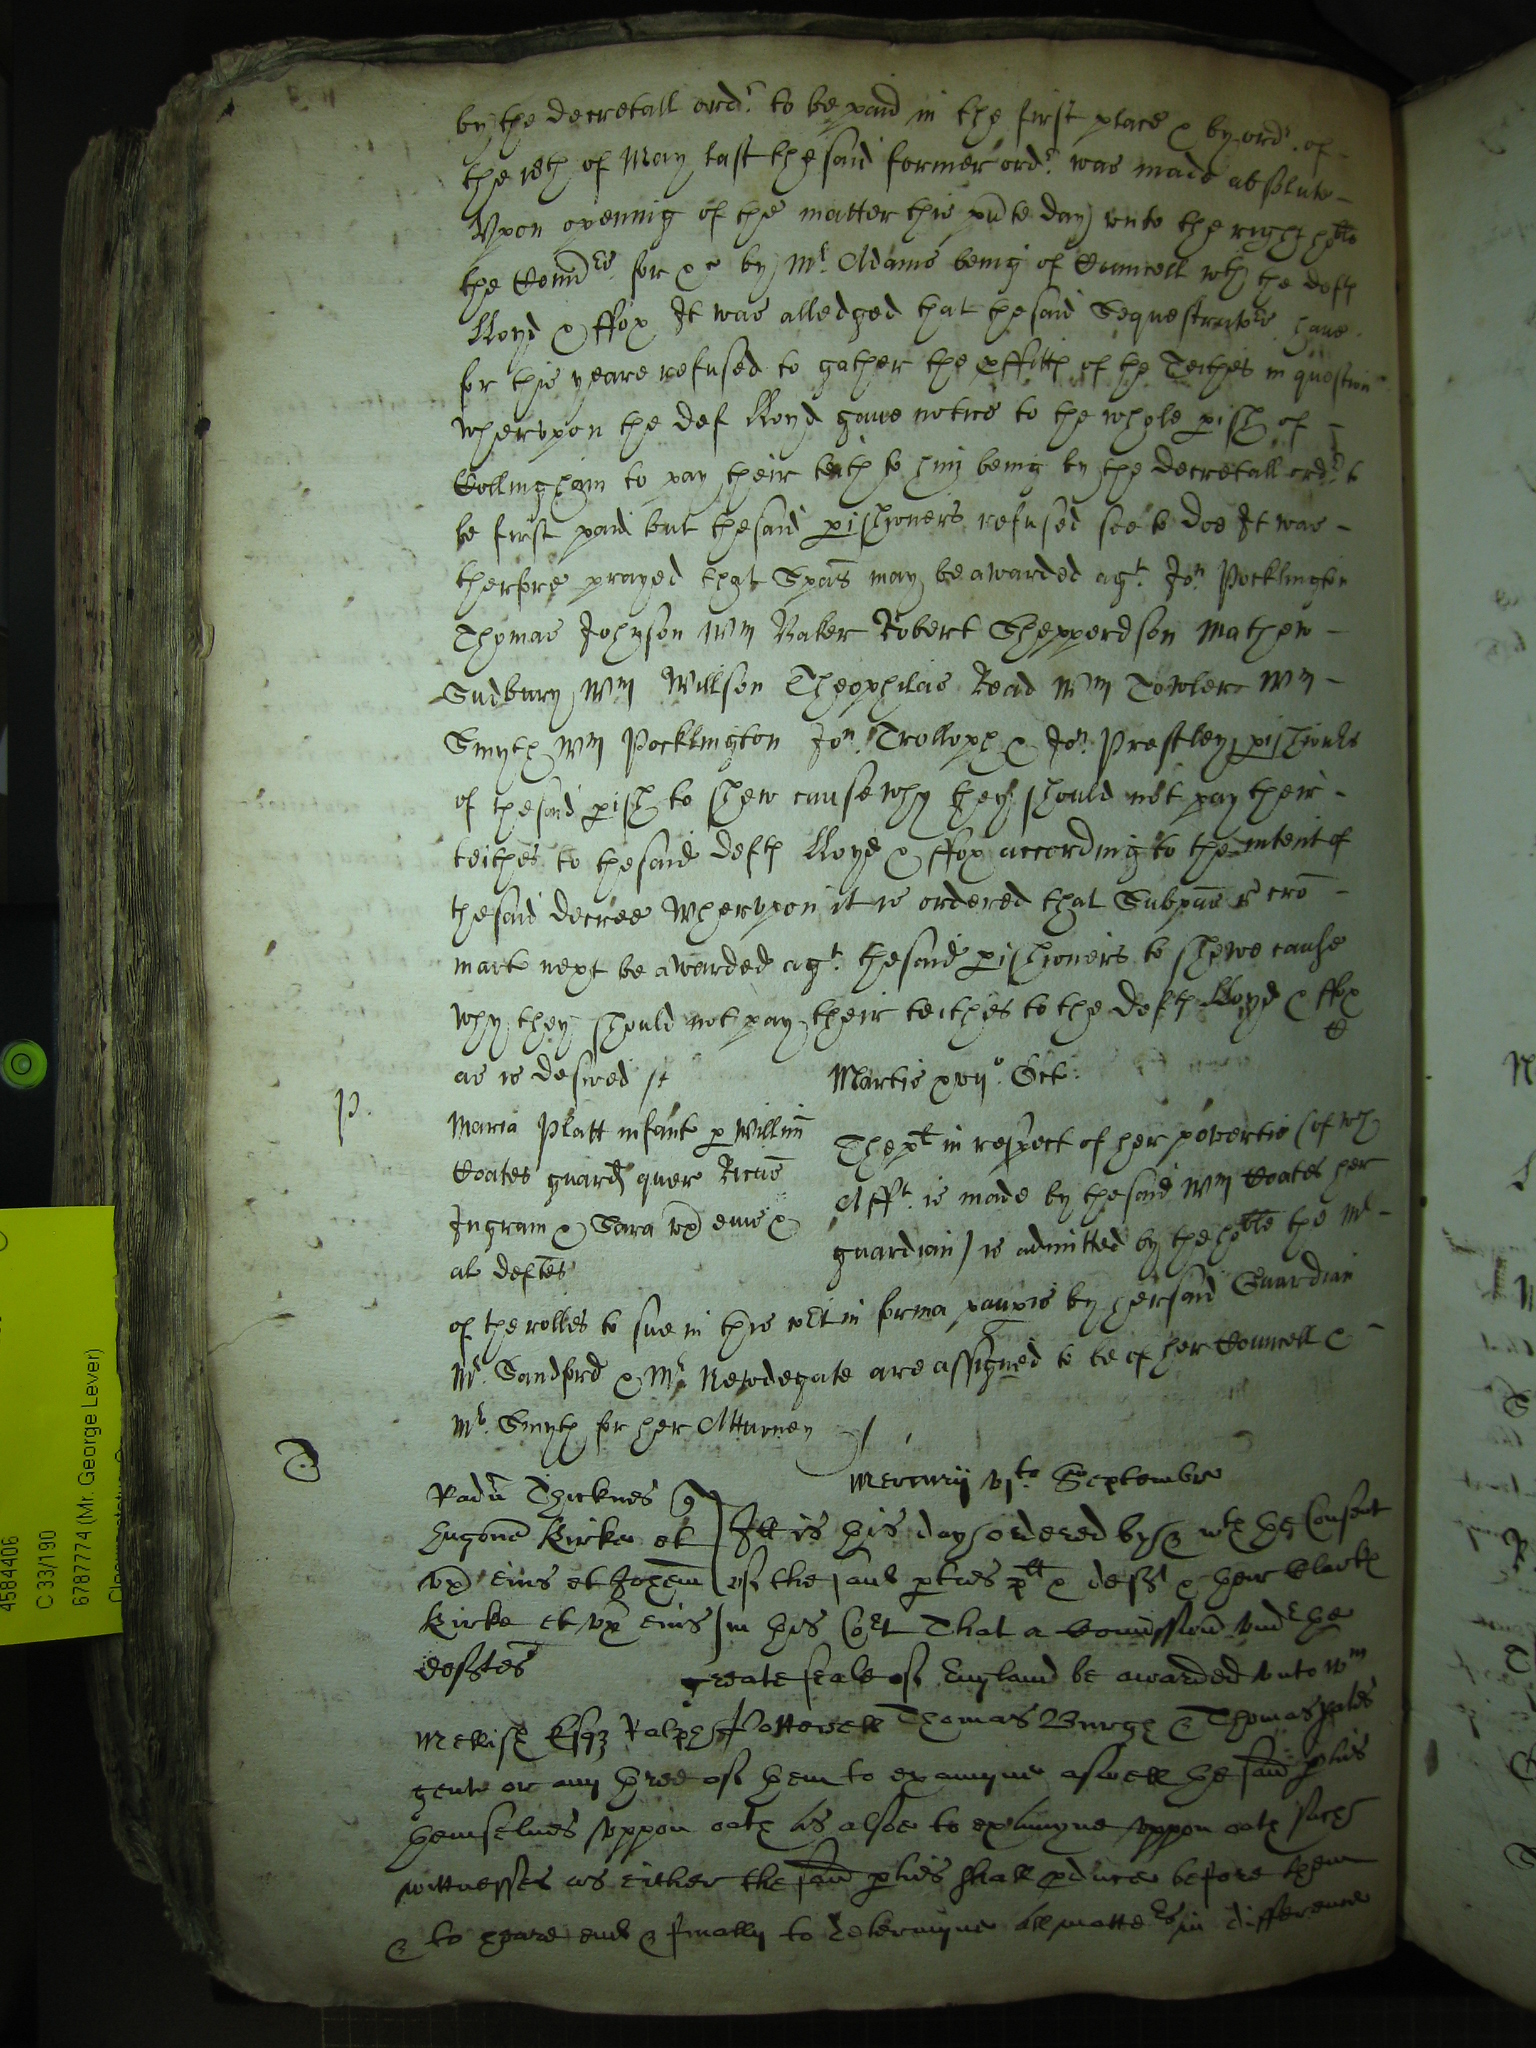 by the decretall ord:r to be paid in the first place & by ord:r of
the 18th of May last the said former ord:r was made absolute
Vpon opening of the matter this pñte day vnto the right hoble
the Com:rs for &c by Mr Adams being of Councell wth the defts
Lloyd & ffox It was alledged that the said Sequestrators haue
for this yeare refused to gather the pffitts of the Teithes in question
whervpon the def Lloyd gaue notice to the whole pish of
Collingham to pay their teith to him being by the decretall ord:r to
be first paid but the said pishioners refused soe to doe It was
therfore prayed that Spas may be awarded agt Jon Pocklington
Thomas Johnson Wm Baker Robert Shepperdson Mathew
Sudbury Wm Willson Theophilas Read Wm Towler Wm
Smyth Wm Pocklington Jon Trollopp & Jon Prestley pishioners
of the said pish to shew cause why they should not pay their
teithes to the said defts Lloyd & ffox according to the intent of
the said decree Whervpon it is ordered that Subpas cro
mart next be awarded agt the said pishioners to shewe cause
why they should not pay their teithes to the defts Lloyd & ffox
as is desired
Martis xvijo Oct:
P.
Maria Platt infant p Willm
Coates guard quer Ricus
Ingram & Sara vx eius &
al deftes
The plt in respect of her povertie (of wch
Afft is made by the said Wm Coates her
guardian) is admitted by the hoble the Mr
of the rolles to sue in this Crt in forma paupis by her said Guardian
Mr Sandford & Mr Newdegate are assigned to be of her Councell &
Mr Smyth for her Atturney
T
Mercurij Septembr
Radũ Thicknes q
Hugonẽ Kirke et
vx eius et Johem
Kirke et vx eius
defftes
Itt is this day ordered by & wth the Consent
of the said pties plt & defts & their Clarks
in this Cort That a Comission vndr the
greate seale of England be awarded vnto Wm
Mellish Esqz Ralph Thomas Burgh & Thomas Yates
gent or any three of them to examyne aswell the said pties
themselues vppon oath as alsoe to examyne vppon oath such
wittnesses as either the said pties shall pduce before them
& to heare end & finally to determyne all matters in difference
4584406
C 33/190
6787774 (Mr. George Lever)